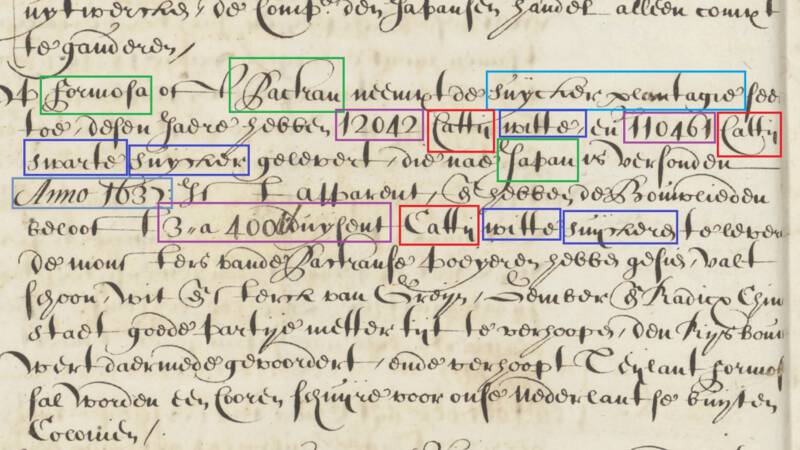 uytwercken, de Compe. den Japansen handel alleen compt
te ganderen /
Formosa oft Sactran neempt de suÿcker plantagie see
toe, desen Jaere hebben 12042 Cattÿ witte, en 110461 Cattÿ
swarte suÿcker gelevert, die nae Japan is versonden
Anno 1637. Ist apparent, hebben de Bouwlieden
belooft 3 a 400 duÿsent Cattÿ witte suÿckeren te lever
de monsters vande Sactranse poeyeren hebben gesien, valt
schoon, wit sterck van Greyn, Gember Radicx Chin
staet goede partije metter tijt te verhoopen, den Rijsbou
wert daermede gevoordert, ende verhoopt Teylant Formo
sal worden een Cooren schuijre voor onse Nederlantse buyten
Colonien /